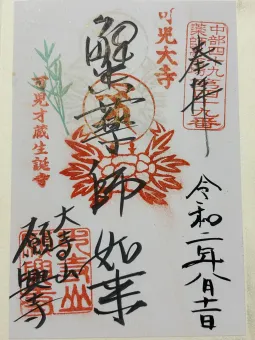 中部四十九
薬師
番
奉拝
令和二年八月十二日
可児大寺
薬師如来
可児才蔵生誕寺
大寺山
願興寺